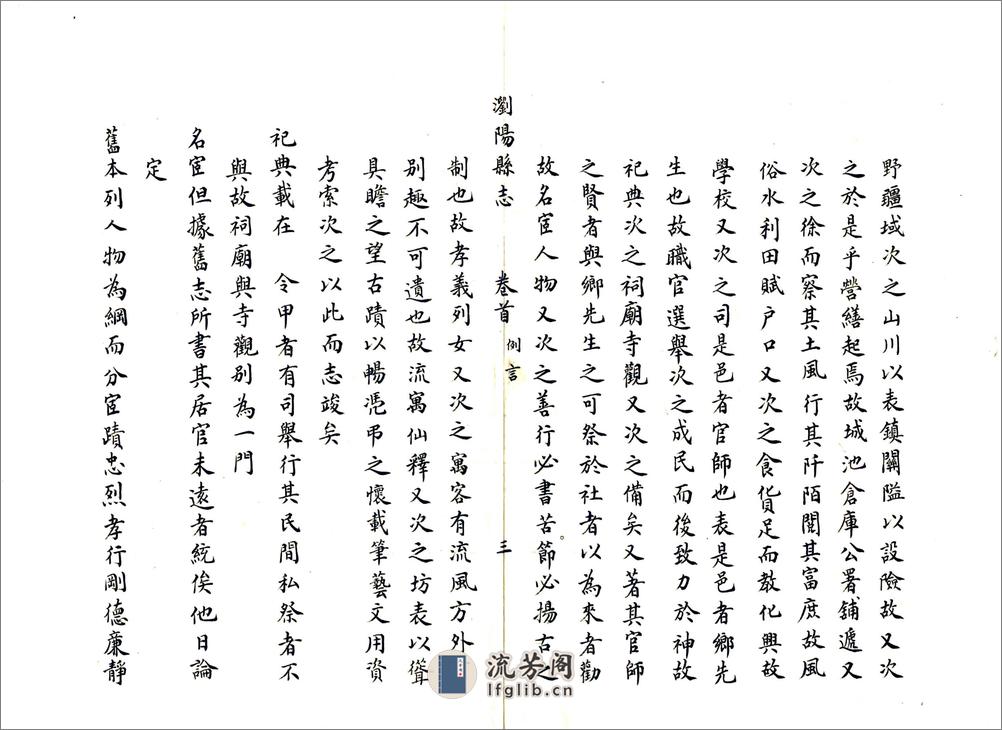 野疆域次之山川以表鎮關隘以設險故又次
之於是乎營繕起焉故城池倉庫公署鋪遞又
次之徐而察其土風行其阡陌閱其富庶故風
俗水利田賦户口又次之食貨足而教化興故
學校又次之司是邑者官師也表是邑者鄉先
生也故職官選舉次之成民而後致力於神故
祀典次之祠廟寺觀又次之備矣又著其官師
之賢者與鄉先生之可祭於社者以為來者勸
故名宦人物又次之善行必書苦節必揚古之
瀏陽縣志 卷首 例言 三
制也故孝義列女又次之寓客有流風方外
別趣不可遺也故流寓仙釋又次之坊表以聳
具瞻之望古蹟以暢憑弔之懷載筆藝文用資
考索次之以此而志竣矣
祀典載在 令甲者有司舉行其民間私祭者不
與故祠廟與寺觀別為一門
名宦但據舊志所書其居官未遠者統俟他日論
定
舊本列人物為綱而分宦蹟忠烈孝行剛德廉靜
流芳阁
lfglib.cn